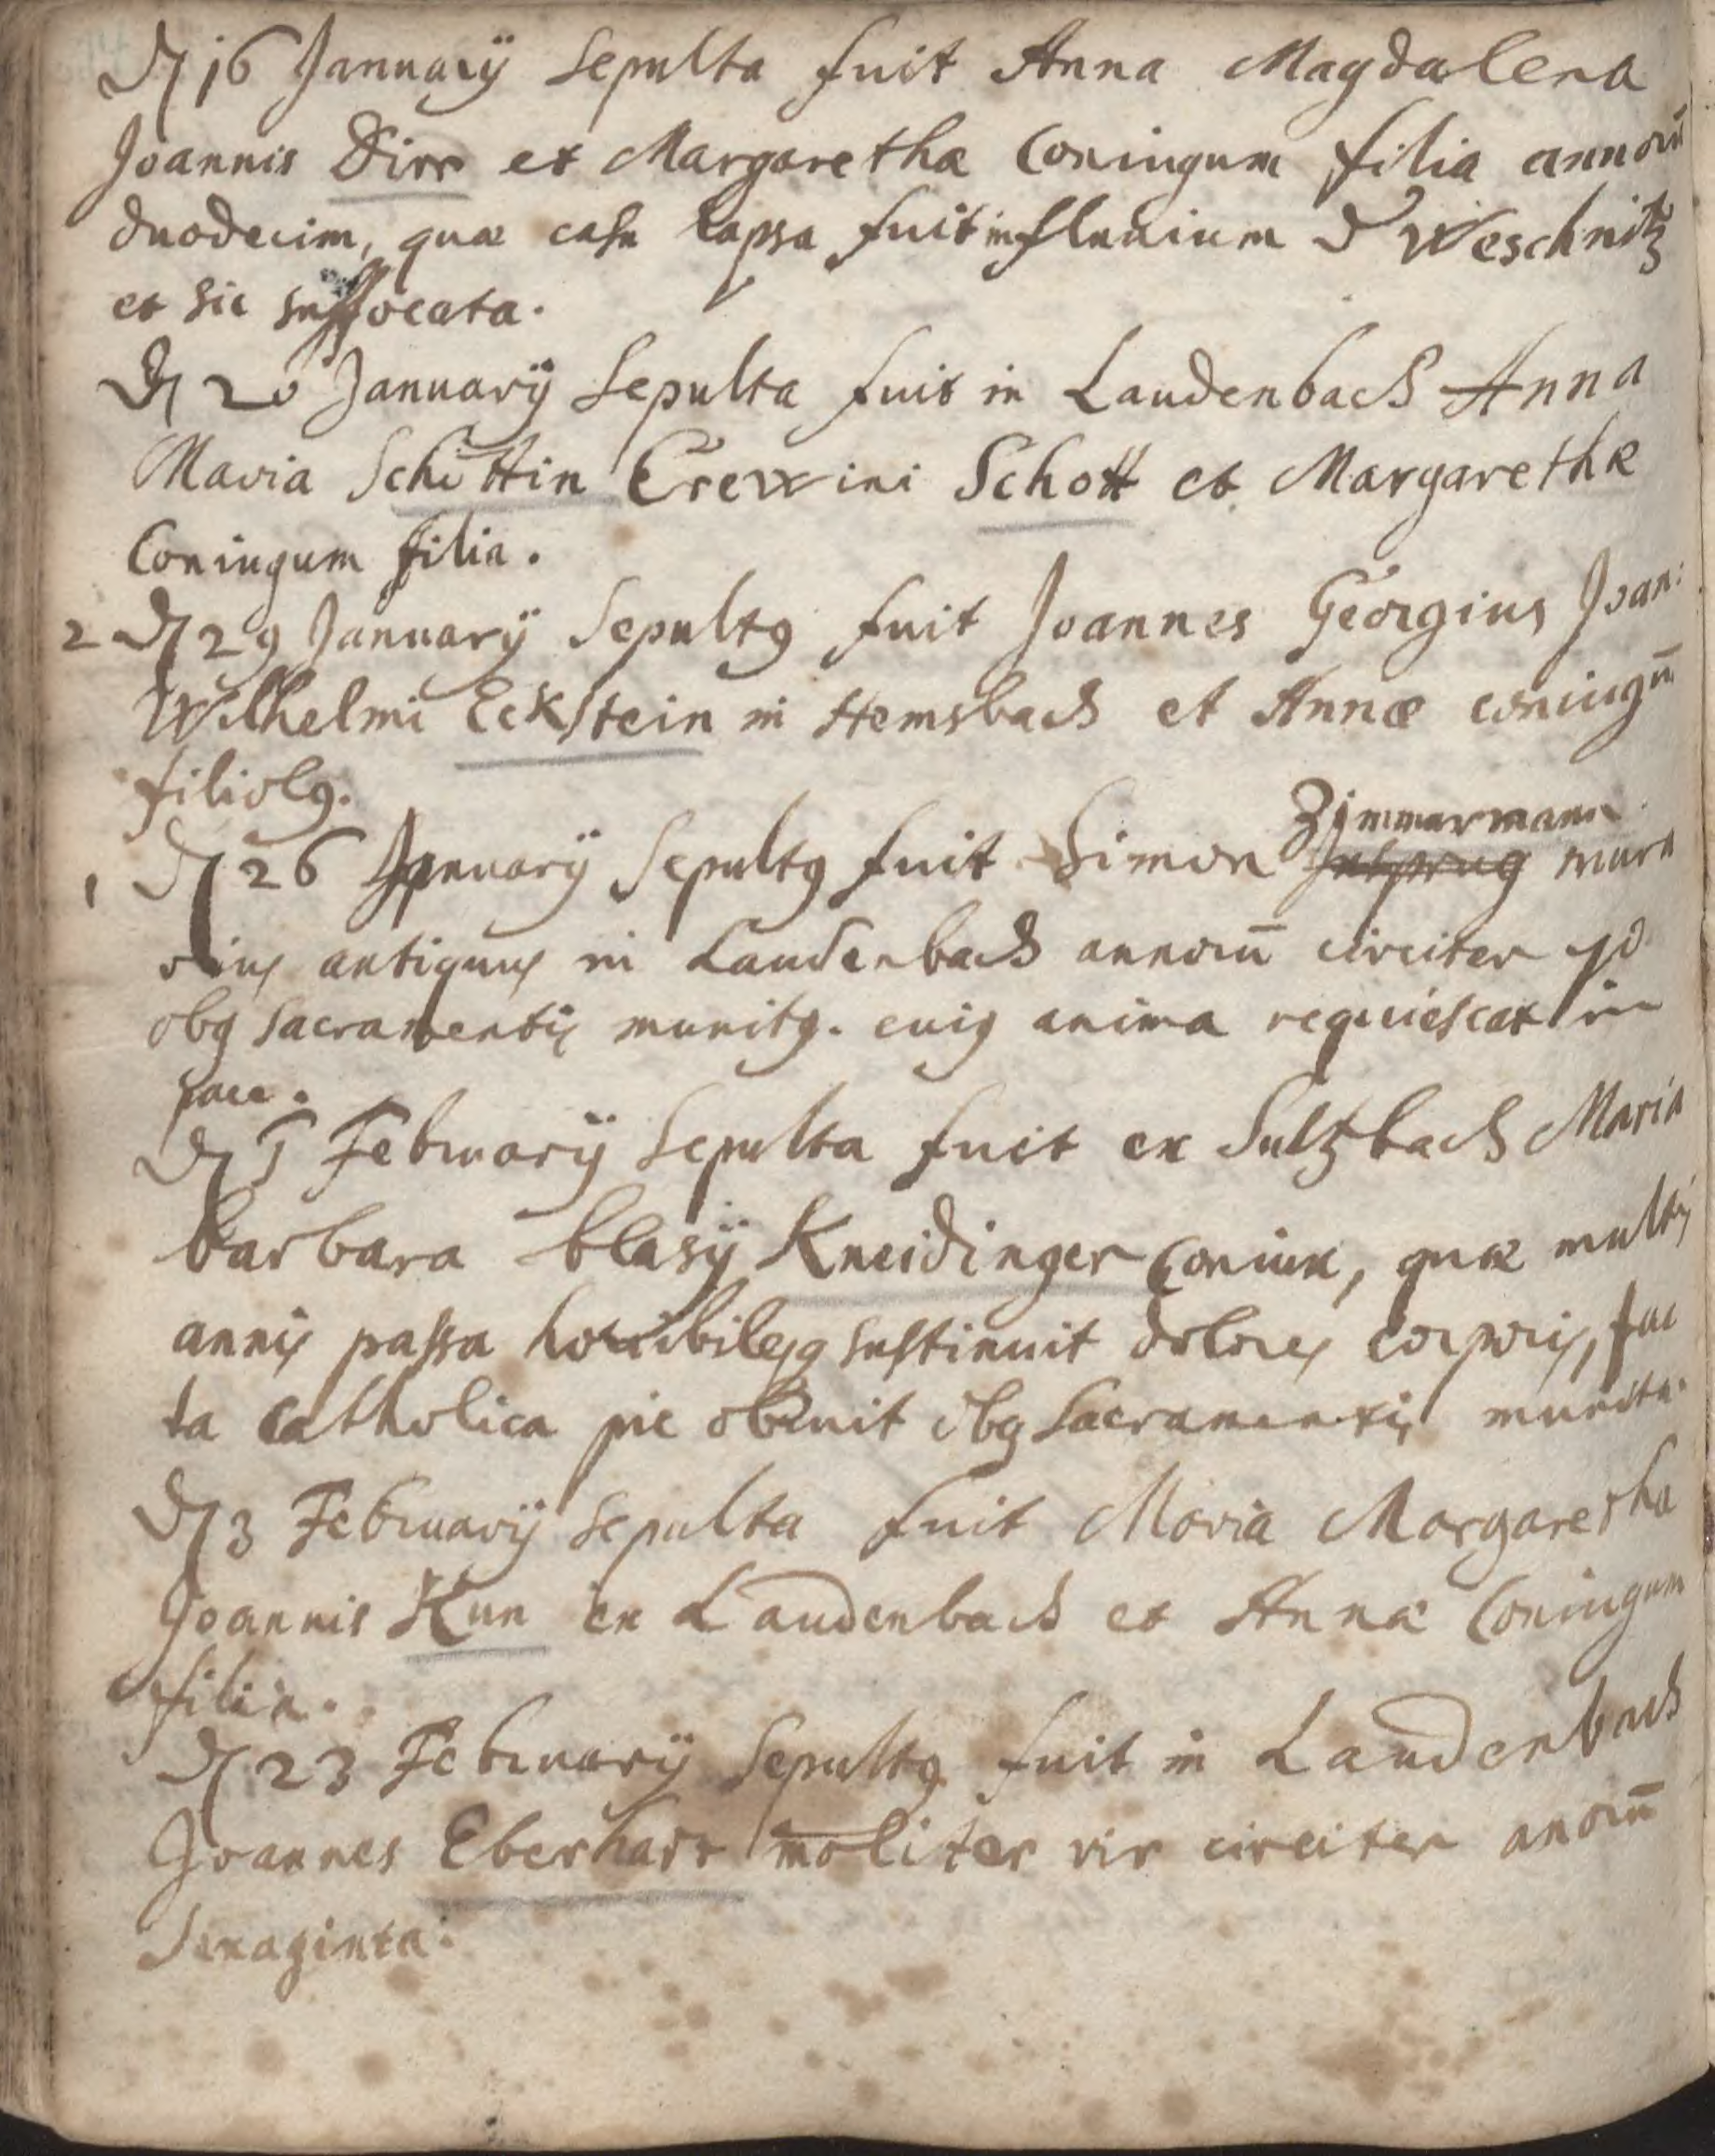 D 16 Januarÿ Sepulta fuit Anna Magdalena
Joannis Dirr et Margarethæ Coniugum filia annorū
duodecim, quæ casu lapsa fuit in fluuium D Weschnitz
et sic suffocata.
D 20 Januarÿ Sepulta fuit in Laudenbach Anna
Maria Schüttin Erewini Schott et Margarethæ
Coniugum filia.
2 D 29 Januarÿ Sepultg fuit Joannes Georgius Joan:
Wilhelmi Eckstein in Hemsbach et Annæ coniugū
filiolg.
Zimmermann
1 D 26 Januarÿ Sepultg fuit Simon mura
rius antiquus in Laudenbach annorū circiter 70
obg Sacramentis munitg. cuig anima requiescat in
pace.
D 1 Februarÿ Sepulta fuit ex Sultzbach Maria
barbara blasÿ Kneidinger Coniux, quæ multis
annis passa horribilesq sustinuit dolores corporis, fac
ta catholica pie obiuit obg Sacramentis munita.
D 3 Februarÿ Sepulta fuit Maria Margaretha
Joannis Kun ex Laudenbach et Annæ Coniugum
filia.
D 23 Februarÿ Sepultg fuit in Laudenbach
Joannes Eberhart molitor vir circiter anorū
Sexaginta.